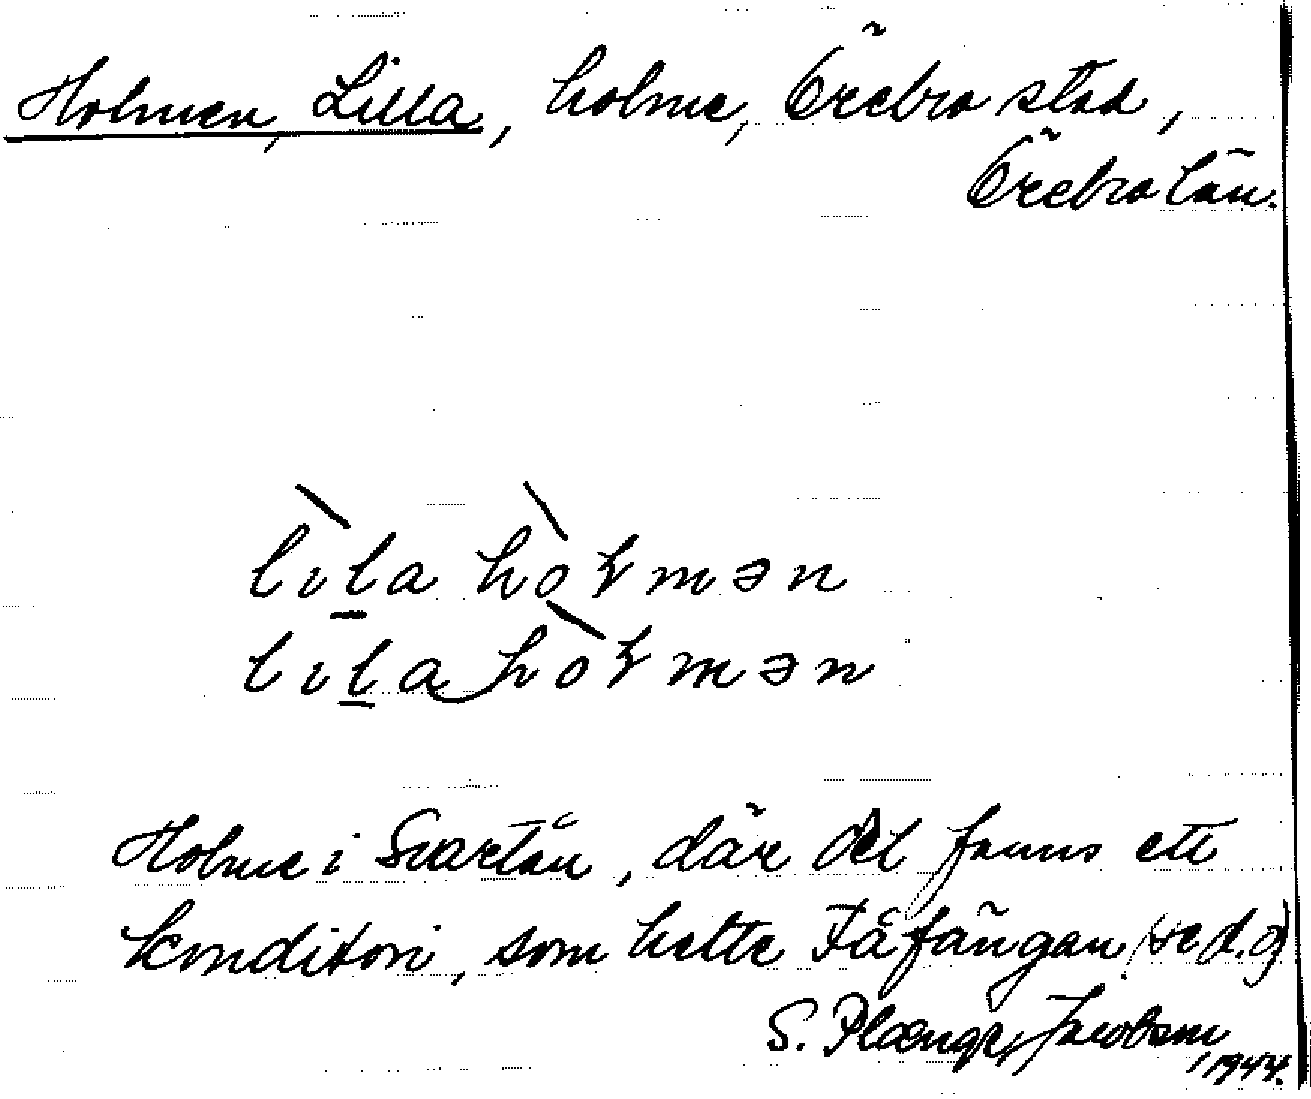 Holmen, Lilla, holme, Örebro stad,
Örebro län.
lı̀la hòɫmən
lıla hòɫmən
Holme i Svartån, där det fanns ett
konditori, som hette Fåfängan (se d.o)
S. Plænge Jacobson
1944.